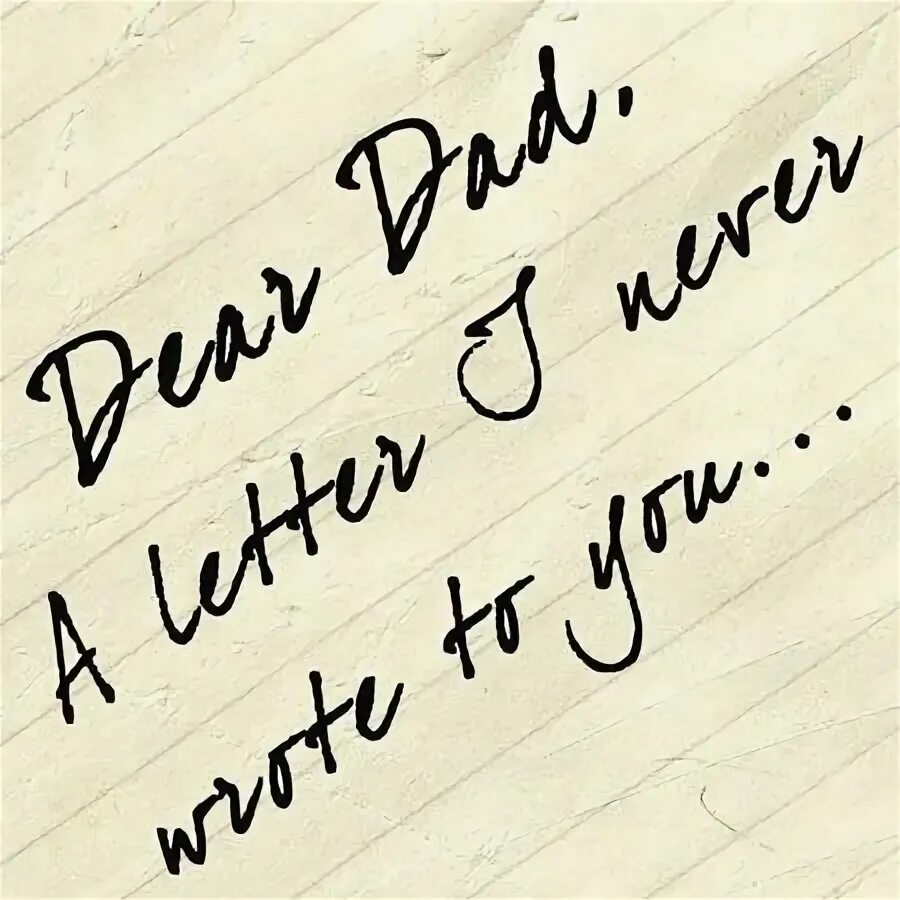 Dear Dad,
A letter I never
wrote to you...